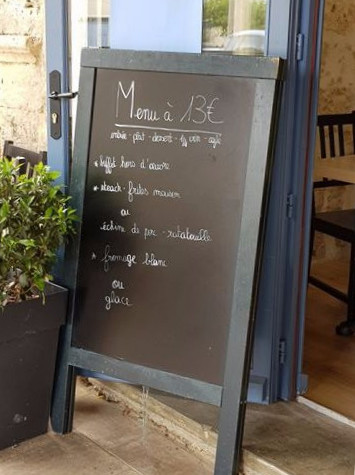 Menu à 13€
entrée - plat - dessert - 1/4 vin - café
* buffet hors d'œuvre
* steack - frites maison
ou
échine de porc - ratatouille
* fromage blanc
ou
glace